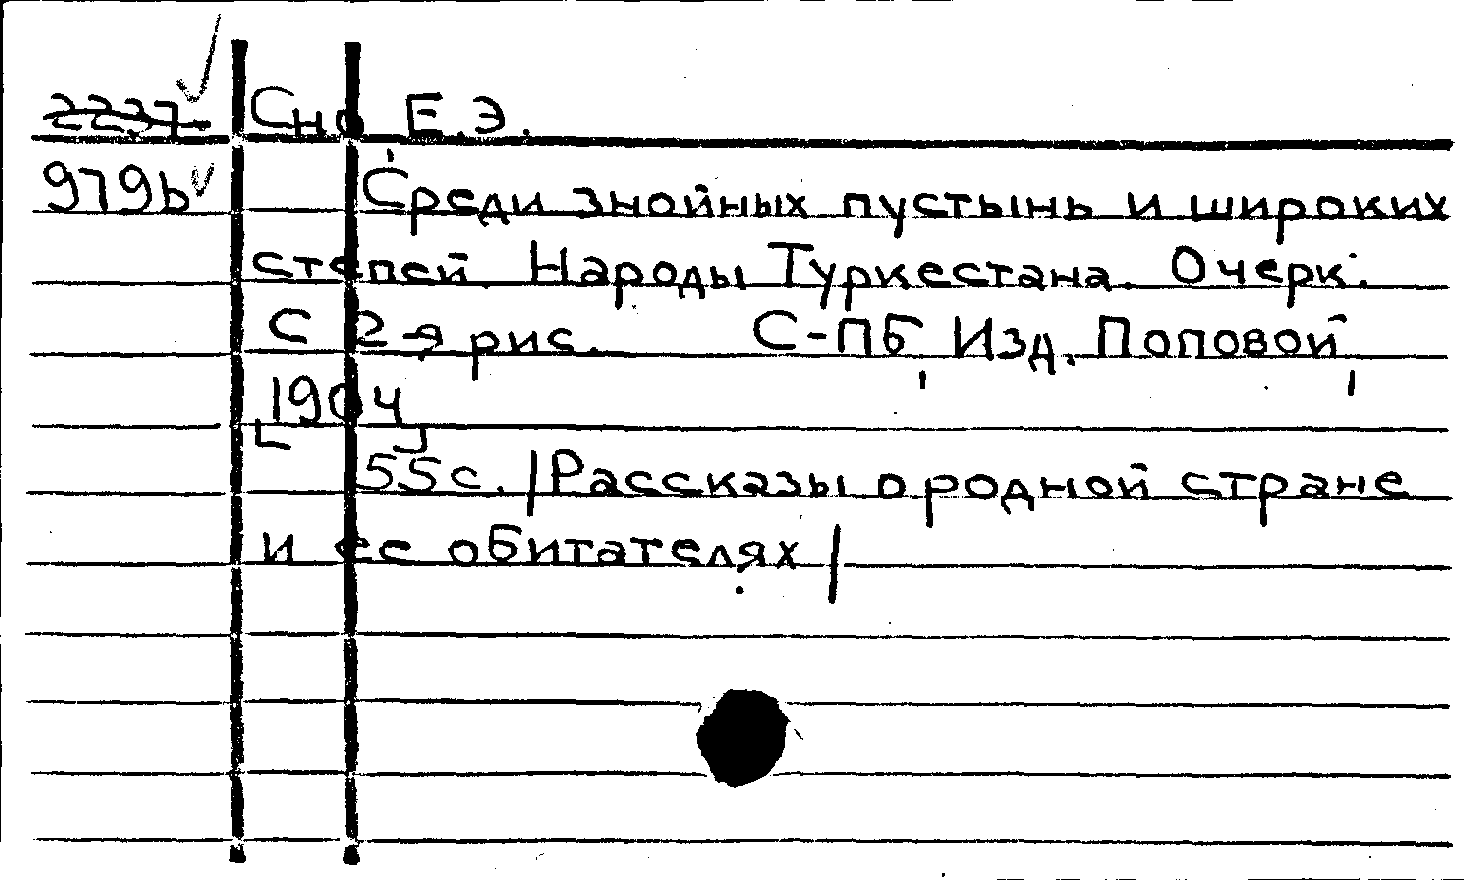 2237 Сно Е.Э.
979ь Среди знойных пустынь и широких
степей. Народы Туркестана. Очерк.
С 2-я рис. С-ПБ, Изд. Поповой,
[1904]
55с. |Рассказы о родной стране
и ее обитателях|